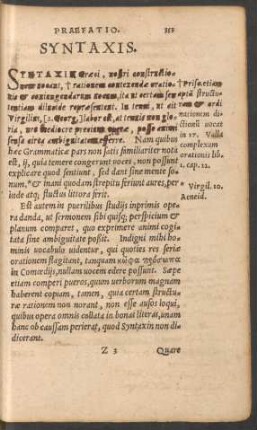 PRAEFATIO.
SYNTAXIS.
SYNTAXIN Graeci, nostri constructio-
nem vocant, † rationem contexendae oratio-
nis & coniungendarum vocum, ita ut certam sen-
tentiam dilucide repraesentent. In tenui, ut ait
Virgilius, [2. Georg.] labor est, at tenuis non glo-
ria, nec mediocre precium operae, posse animi
sensa citra ambiguitatem efferre. Nam quibus
haec Grammaticae pars non satis familiariter nota
est, ij, quia temere congerunt voces, non possunt
explicare quod sentiunt, sed dant sine mente so-
num, * & inani quodam strepitu feriunt aures, per-
inde atq; fluctus littora ferit.
Est autem in puerilibus studijs inprimis ope-
ra danda, ut sermonem sibi quisq; perspicuum et
planum comparet, quo exprimere animi cogi-
tata sine ambiguitate possit. Indigni mihi ho-
minis vocabulo videntur, qui quoties res seria
orationem flagitant, tanquam κῶφα πρόσωπα
in Comœdijs, nullam vocem edere possunt. Saepe
etiam competi pueros, quum verborum magnam
haberent copiam, tamen, quia certam structu-
rae rationem non norant, non esse ausos loqui,
quibus opera omnis collata in bonas literas, unam
hanc ob caussam perierat, quod Syntaxin non di-
dicerant.
Z 3 Quare
† Priscæ etiam
structu-
ram & ordi
nationem di
ctionū vocat
in 17. Valla
complexum
orationis lib.
1. cap. 22.
* Virgil. 10.
Aeneid.